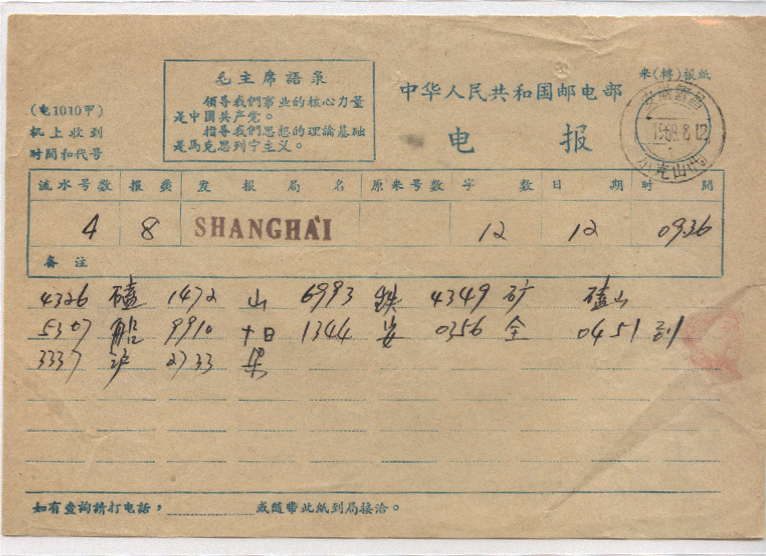 毛主席語录
領导我們事业的核心力量
是中國共产党。
指导我們思想的理論基础
是馬克思列宁主义。
来(轉)报紙
中华人民共和国邮电部
电 报
(电1010甲)
机上收到
时間和代号
流水号数 报类 发报局名 原来号数 字数 日期 时間
4 8 SHANGHAI 12 12 0936
备注
4326 磕 1472 山 6993 鉄 4349 矿 磕山
5307 船 9910 十日 1344 安 0356 全 0451 到
3337 沪 2733 梁
如有查詢請打电話, 或随带此紙到局接洽。